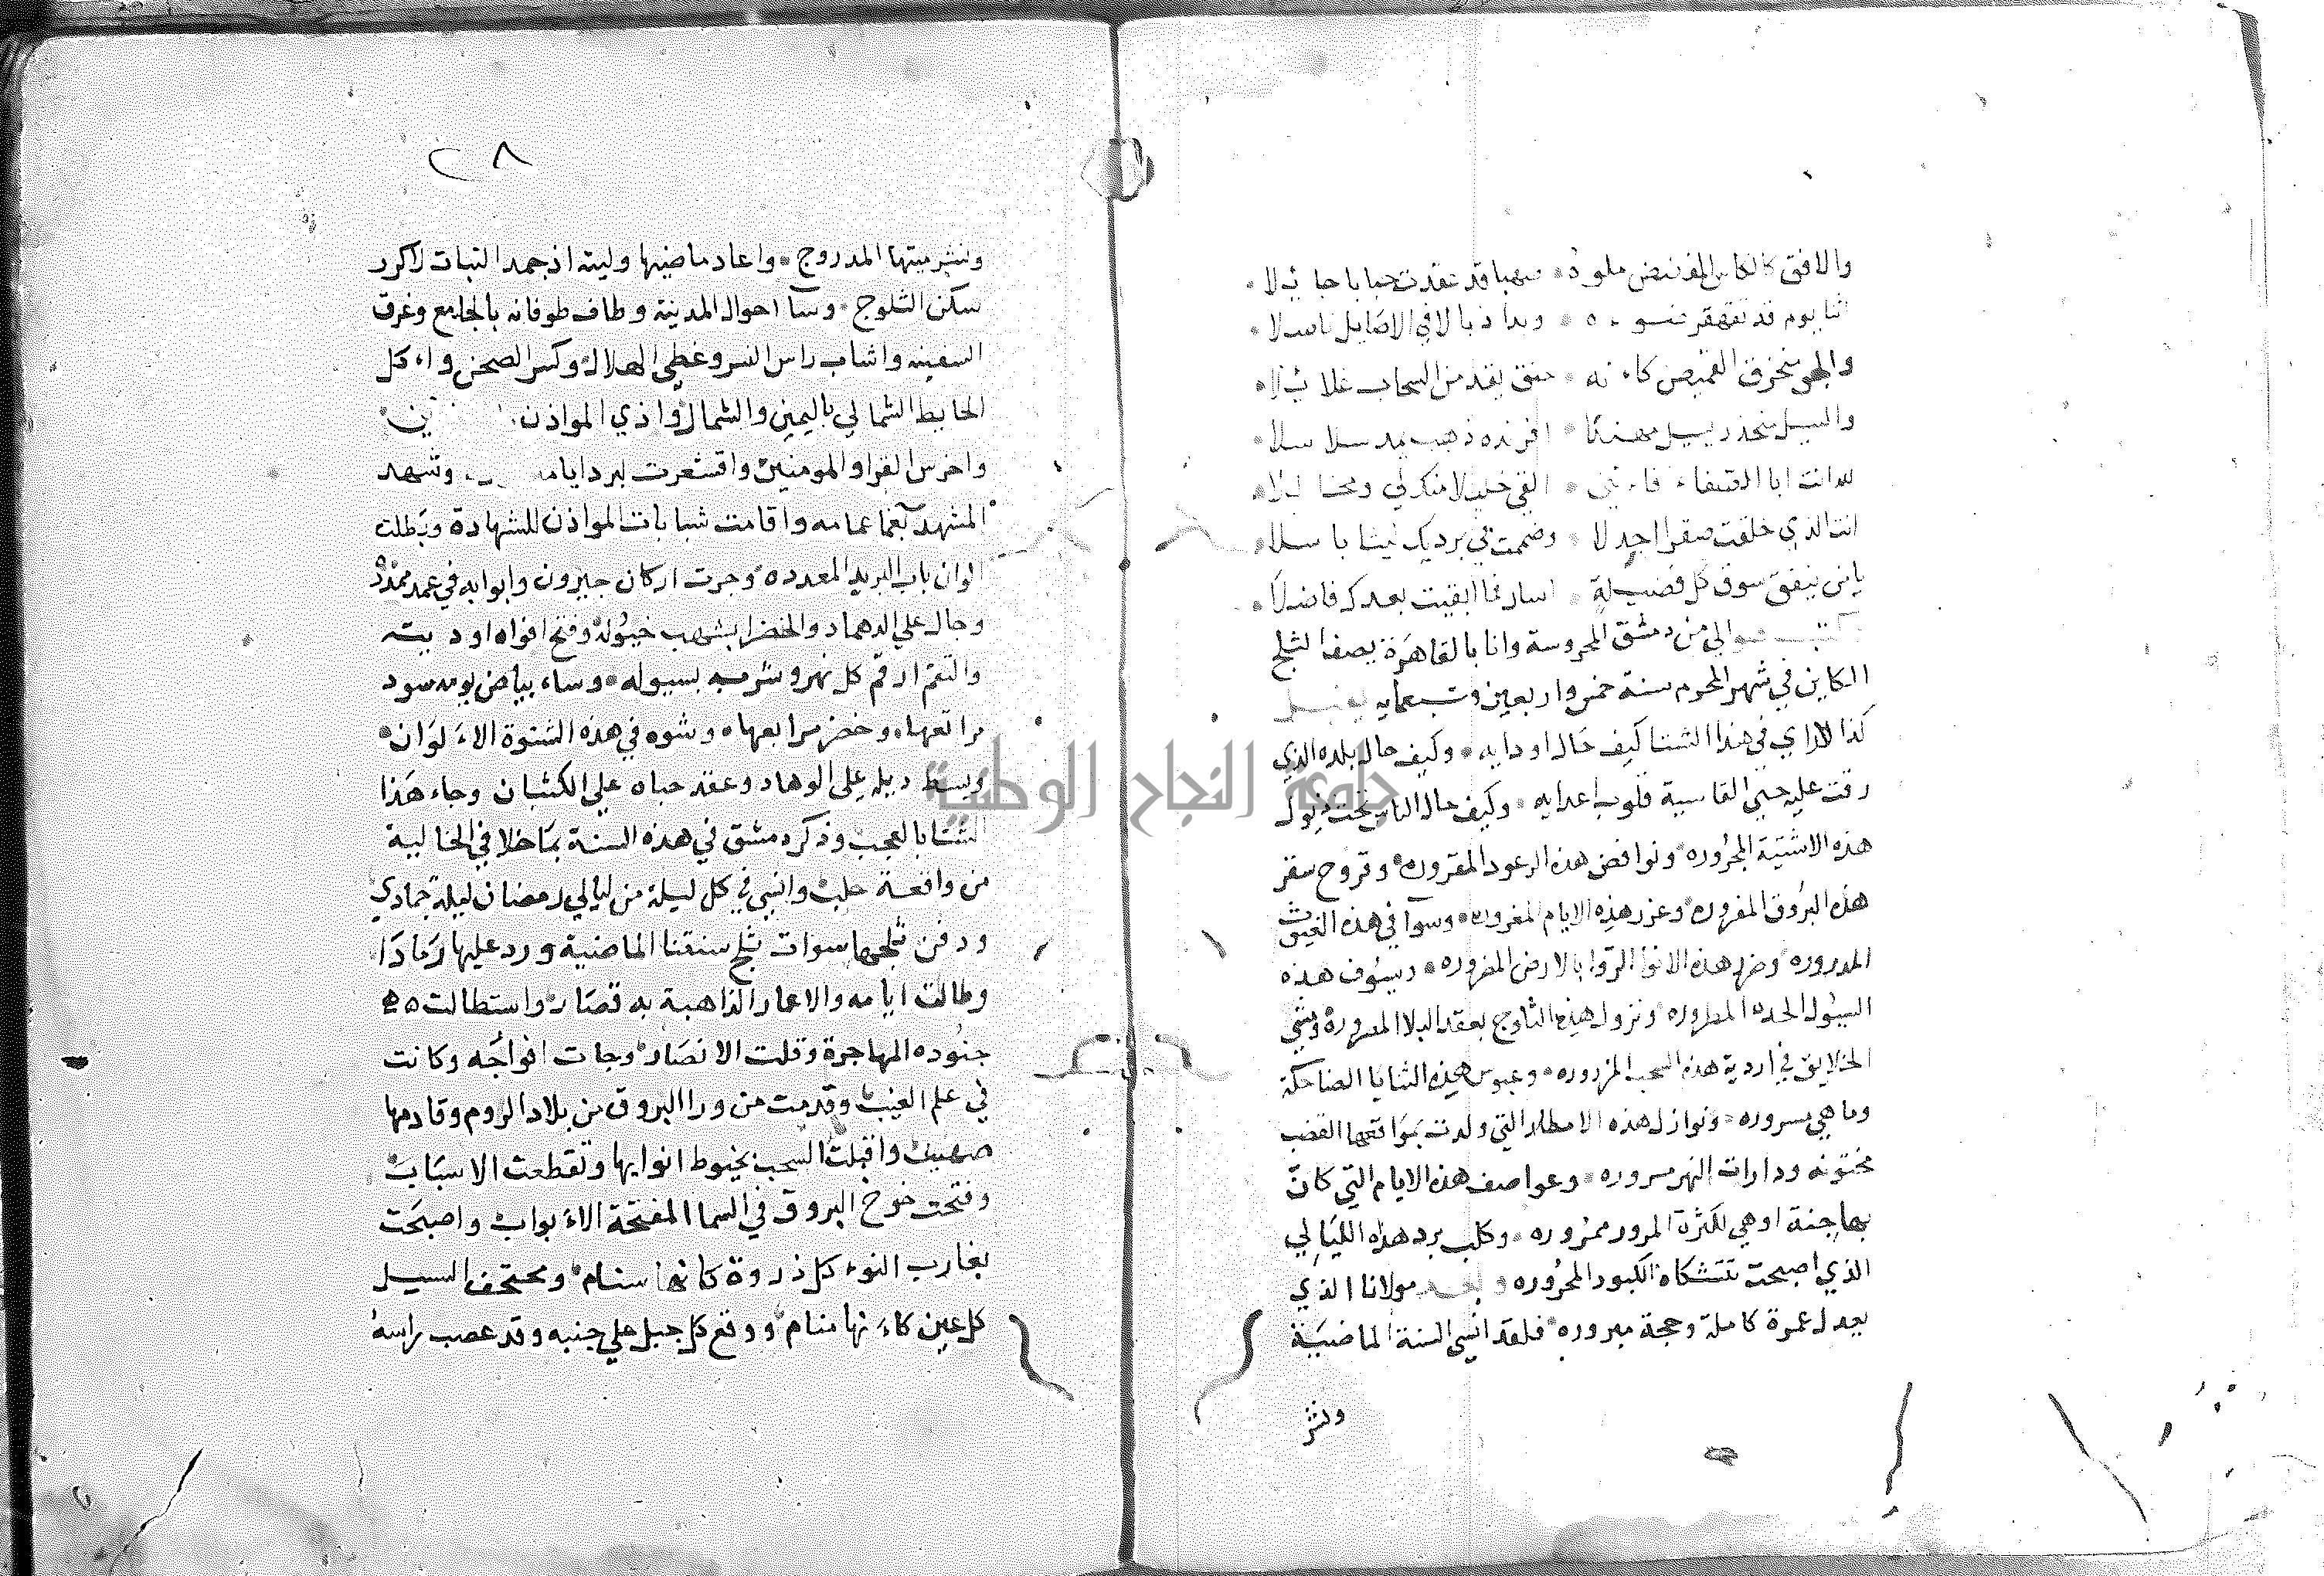 والافق كالكاس المفضض ملوه * صهبا قد عقدت حبابا جايلا *
يوم قد تقهقر * وبدا ذبالا في الاصايل ناسلا *
والجو منخرق القميص كاءنه * حنق يقد من السحاب غلايلا *
والسيل منحدر يسيل مهندا * افرنده ذهب يمد سلاسلا *
لله انت ابا الصفاء فاءنني * القي خليلا منك لي ومخاللا *
انت الذي خلقت صقرا اجدلا * وضممت في برديك ليثا باسلا *
يا من ينفق سوق كل فضيلة * ابقيت بعدك فاضلا *
كتب هو الي من دمشق المحروسة وانا بالقاهرة يصف الثلج
الكاين في شهر المحرم سنة خمس واربعين وسبعمايه
كذا لاراي في هذا الشتا كيف حال اودايه * وكيف حال بلده الذي
رقت عليه حتي القاسية قلوب اعدايه * وكيف حال الناس تحت ذيول
هذه الاشتية المجروره * ونوافض هذه الرعود المقروره * وقروح سفر
هذه البروق المغروره * وغرر هذه الايام المغروره * وسوآ في هذه الغيوث
المدروره * وضر هذه الانوا الرّوا بالارض المضروره * وسيوف هذه
السيول الحده المطروره * ونزول هذه الثلوج بعقد البلا المصروره * ومشي
الخلايق في اردية هذه السحب المزروره * وعبوس هذه الثنايا الضاحكة
وما هي مسروره * ونوازل هذه الامطار التي ولدت بمواقعها القضب
مختونه ودارات النهر مسروره * وعواصف هذه الايام التي كانّ
بها جنة اوهي لكثرة المرور ممروره * وكلب برد هذه الليالي
الذي اصبحت تتشكاه الكبود المحروره * وبعد مولانا الذي
يعدل عمرة كاملة وحجة مبروره * فلقد انسي السنة الماضية
ونشر
٢٨
ونشر ميتها المدروج * واعاد ماضيها وليته اذ جمد النبات لا كرر
سكن الثلوج * وسآ احوال المدينة وطاف طوفانه بالجامع وغرق
السفينه واشاب راس النسر وغطي الهلال * وكسر الصحن واءكل
الحايط الشمالي باليمين والشمال * واذي المواذن
واخرس القرا والمومنين * واقشعرت لبرد ايامه وشهد
المشهد بغما عمامه واقامت شبابات المواذن للشهادة وبطلت
الوان باب البريد المعدده * وجرت اركان جيرون وابوابه في عمد ممدده
وجال علي الدهماد والخضرا بشهب خيوله * وفتح افواه اوديته
والتقم ارقم كل نهر وشربه بسيوله * وساء بياض يومه سود
مراتعها * وخضر مرابعها * وشوه في هذه الشتوة الاءلوان *
وبسط ذيله علي الوهاد وعقد حباه علي الكثبان وجاء هذا
الشتا بالعجب وذكر دمشق في هذه السنة بما خلا في الخالية
من واقعة حلب * وانسي في كل ليلة من ليالي رمضان ليلة جمادي
ودفن ثلجها سوات ثلج سنتنا الماضية ورد عليها رمادا
وطالت ايامه والاعمار الذاهبة به قصار * واستطالت
جنوده المهاجرة وقلت الانصار * وجات افواجه وكانت
في علم الغيب * وقدمت من ورا البروق من بلاد الروم وقادمها
صهيب * واقبلت السحب بخيوط انوايها وتقطعت الاسباب *
وفتحت خوخ البروق في السما المفتحة الاءبواب * واصبحت
بغارب النوء كل ذروة كانها سنام * وبمحتحف السيل
كل عين كاءنها منام * ووقع كل جبل علي جنبه وقد عصب راسه
جامعة النجاح الوطنية